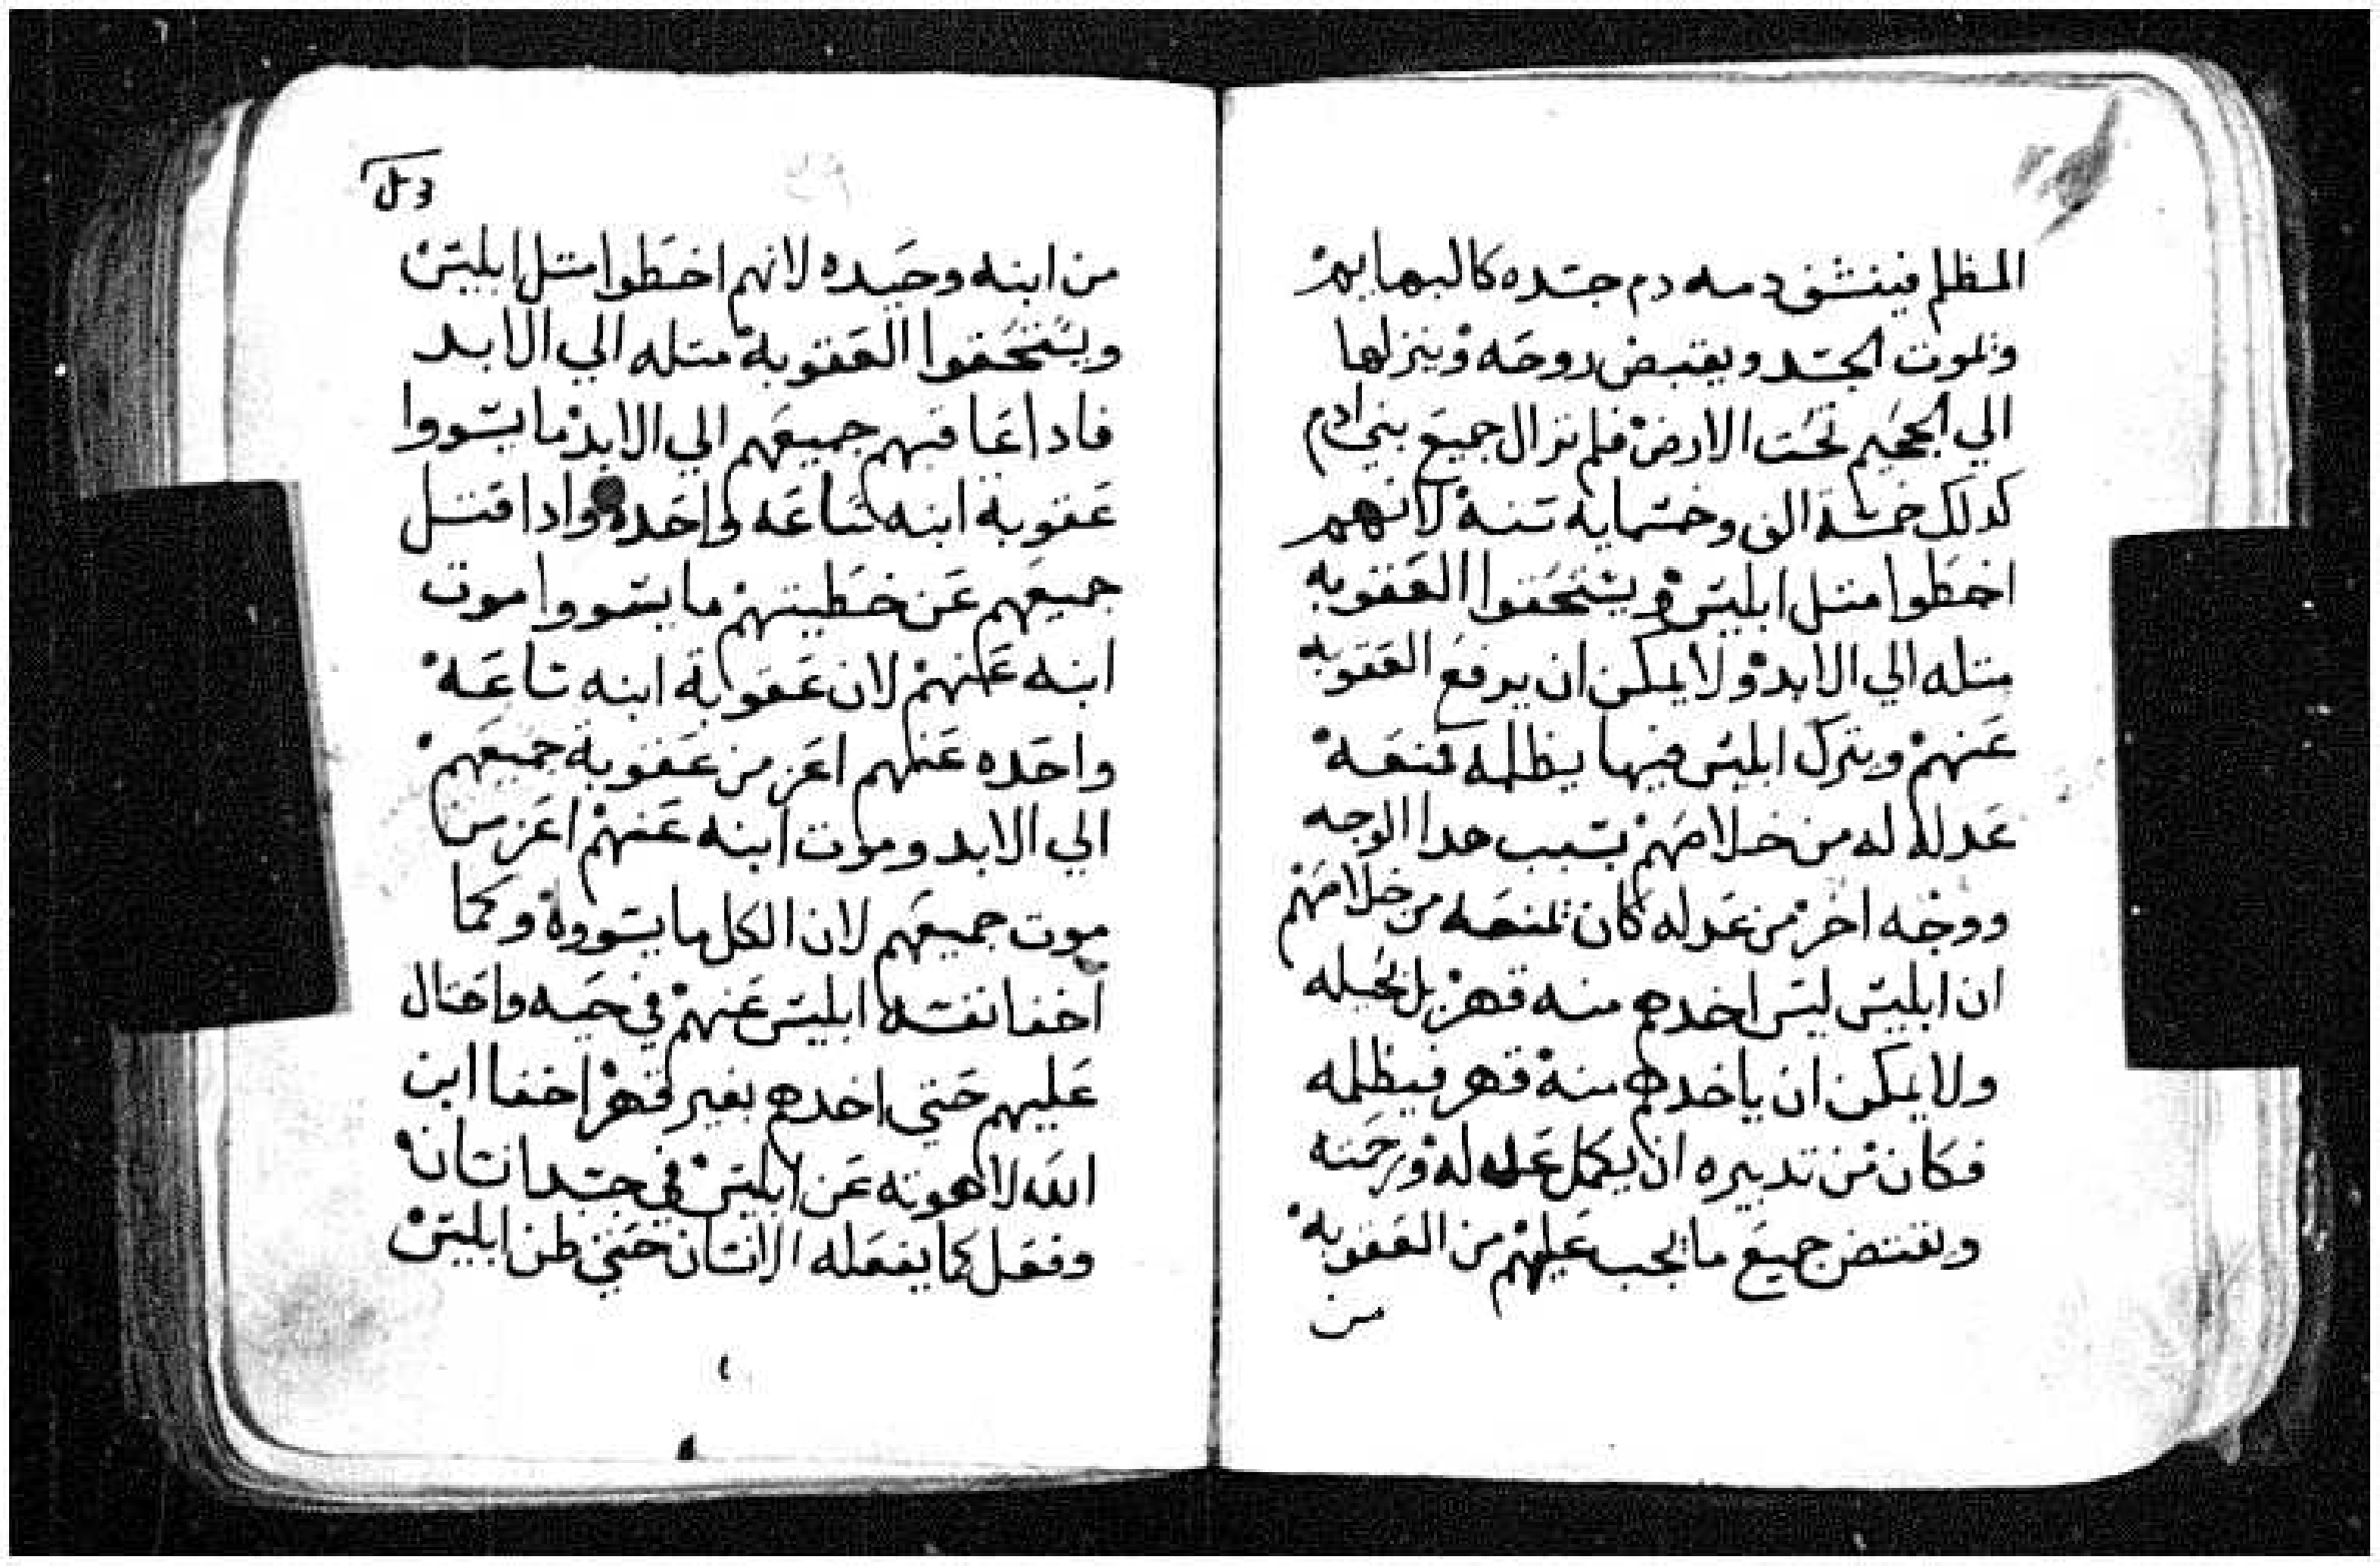 المظلم فينشف دمه دم جسده كالبهايم
وتموت الجسد ويقبض روحه وينزلها
الي الجحيم تحت الارض فلم نزال جميع بني ادم
كدلك خمسة الف وخمسمايه سنه لانهم
اخطوا متل ابليس ويستحقوا العقوبه
متله الي الابد ولا يمكن ان يرفع العقوبه
عنهم ويترك ابليس فيها يظلمه فمنعه
عدله له من خلاصهم بسبب هدا الوجه
ووجه اخر من عدله كان تمنعه من خلاصهم
ان ابليس ليس اخدهم منه قهر بل بحيله
ولا يمكن ان ياخدهم منه قهر فيظلمه
فكان من تدبيره ان يكمل عدله ورحمته
ويقتض جميع ما يجب عليهم من العقوبه
من
من ابنه وحيده لانهم اخطوا متل ابليس
ويستحقوا العقوبة متله الي الابد
فادا عاقبهم جميعهم الي الابد ما يسووا
عقوبة ابنه ساعه واحده وادا قتل
جميعهم عن خطيتهم ما يسووا موت
ابنه عنهم لان عقوبة ابنه ساعه
واحده عنهم اعز من عقوبة جميعهم
الي الابد وموت ابنه عنهم اعز من
موت جميعهم لان الكل ما يسووه وكما
اخفا نفسه ابليس عنهم في حيه واحتال
عليهم حتي اخدهم بغير قهر اخفا ابن
الله لاهوته عن ابليس في جسد انسان
وفعل كما يفعله الانسان حتي ظن ابليس